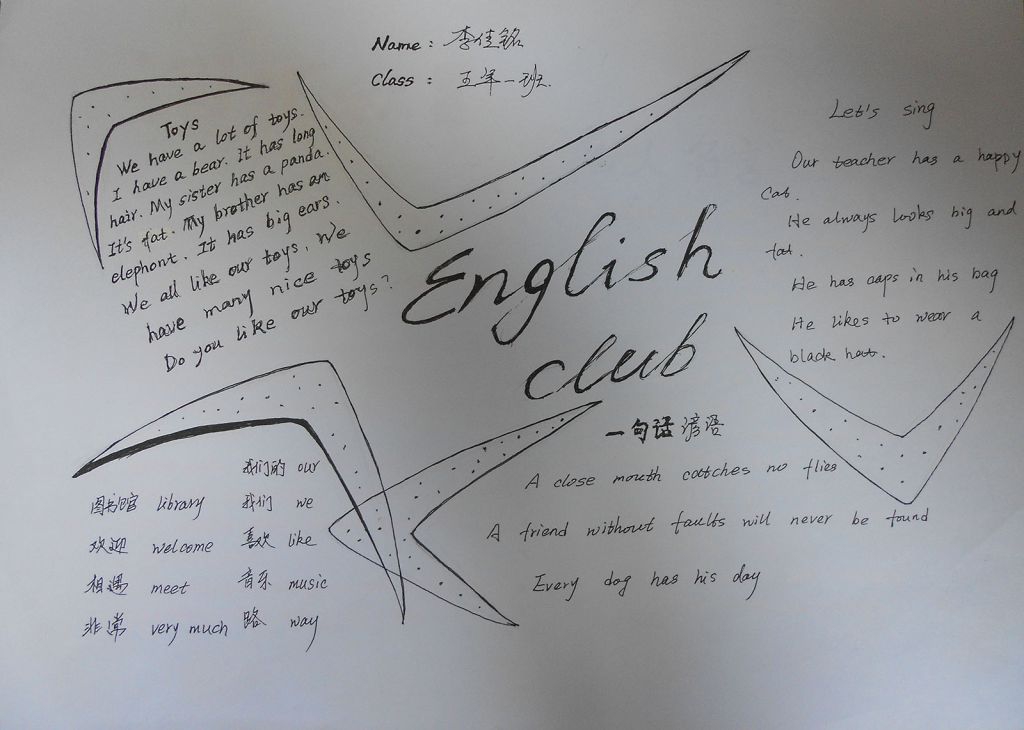 Name : 李佳铭
Class : 五年一班.
Toys
We have a lot of toys.
I have a bear. It has long
hair. My sister has a panda.
It's fat. My brother has am
elephant. It has big ears.
We all like our toys. We
have many nice toys
Do you like our toys?
English
club
Let's sing
Our teacher has a happy
Cat.
He always looks big and
fat.
He has caps in his bag
He likes to wear a
black hat.
我们的 our
图书馆 library 我们 we
欢迎 welcome 喜欢 like
相遇 meet 音乐 music
非常 very much 路 way
一句话谚语
A close mouth catches no flies
A friend without faults will never be found
Every dog has his day